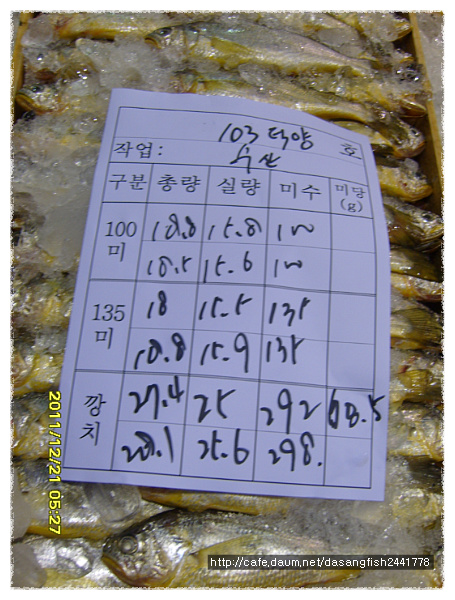 103 덕양 호
작업: 수산
구분 총량 실량 미수 미당(g)
100미 18.8 15.8 100
18.5 15.6 100
135미 18 15.5 135
18.8 15.9 135
깡치 27.4 25 292 68.5
28.1 25.6 298.
2011/12/21 05:27
http://cafe.daum.net/dasangfish2441778